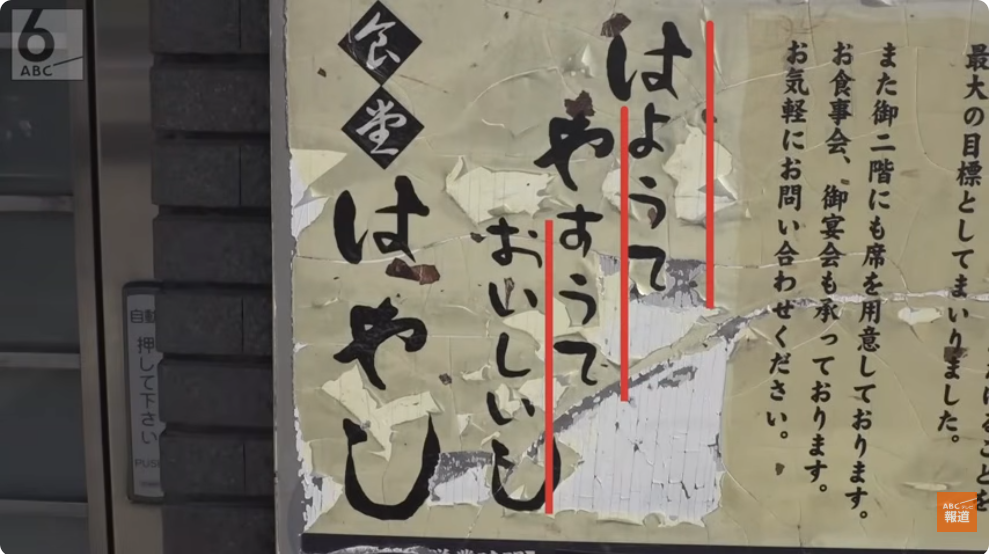 最大の目標としてまいりました。
また御二階にも席を用意しております。
お食事会、御宴会も承っております。
お気軽にお問い合わせください。
はようて
やすうて
おいしいし
食堂
はやし
自動
押して下さい
PUSH
6
ABC
ABCテレビ
報道